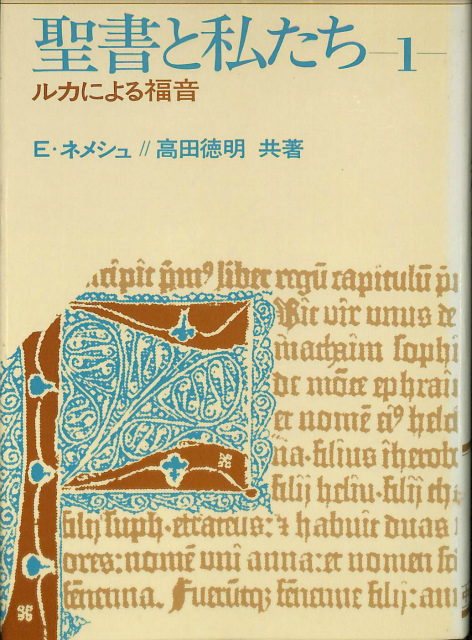 聖書と私たち—1—
ルカによる福音
E・ネメシュ // 高田徳明 共著
liber regū capitulū
uit vir unus de
sophi
de mōte ephrai
et nomē eiꝰ helc
na·filius iherob
filij heliu·filij th
filij suph·etrateus:⁊ habuit duas
ores:nomē uni anna:et nomen
fenenna. Fuerūtqꝫ fenenne filij:an